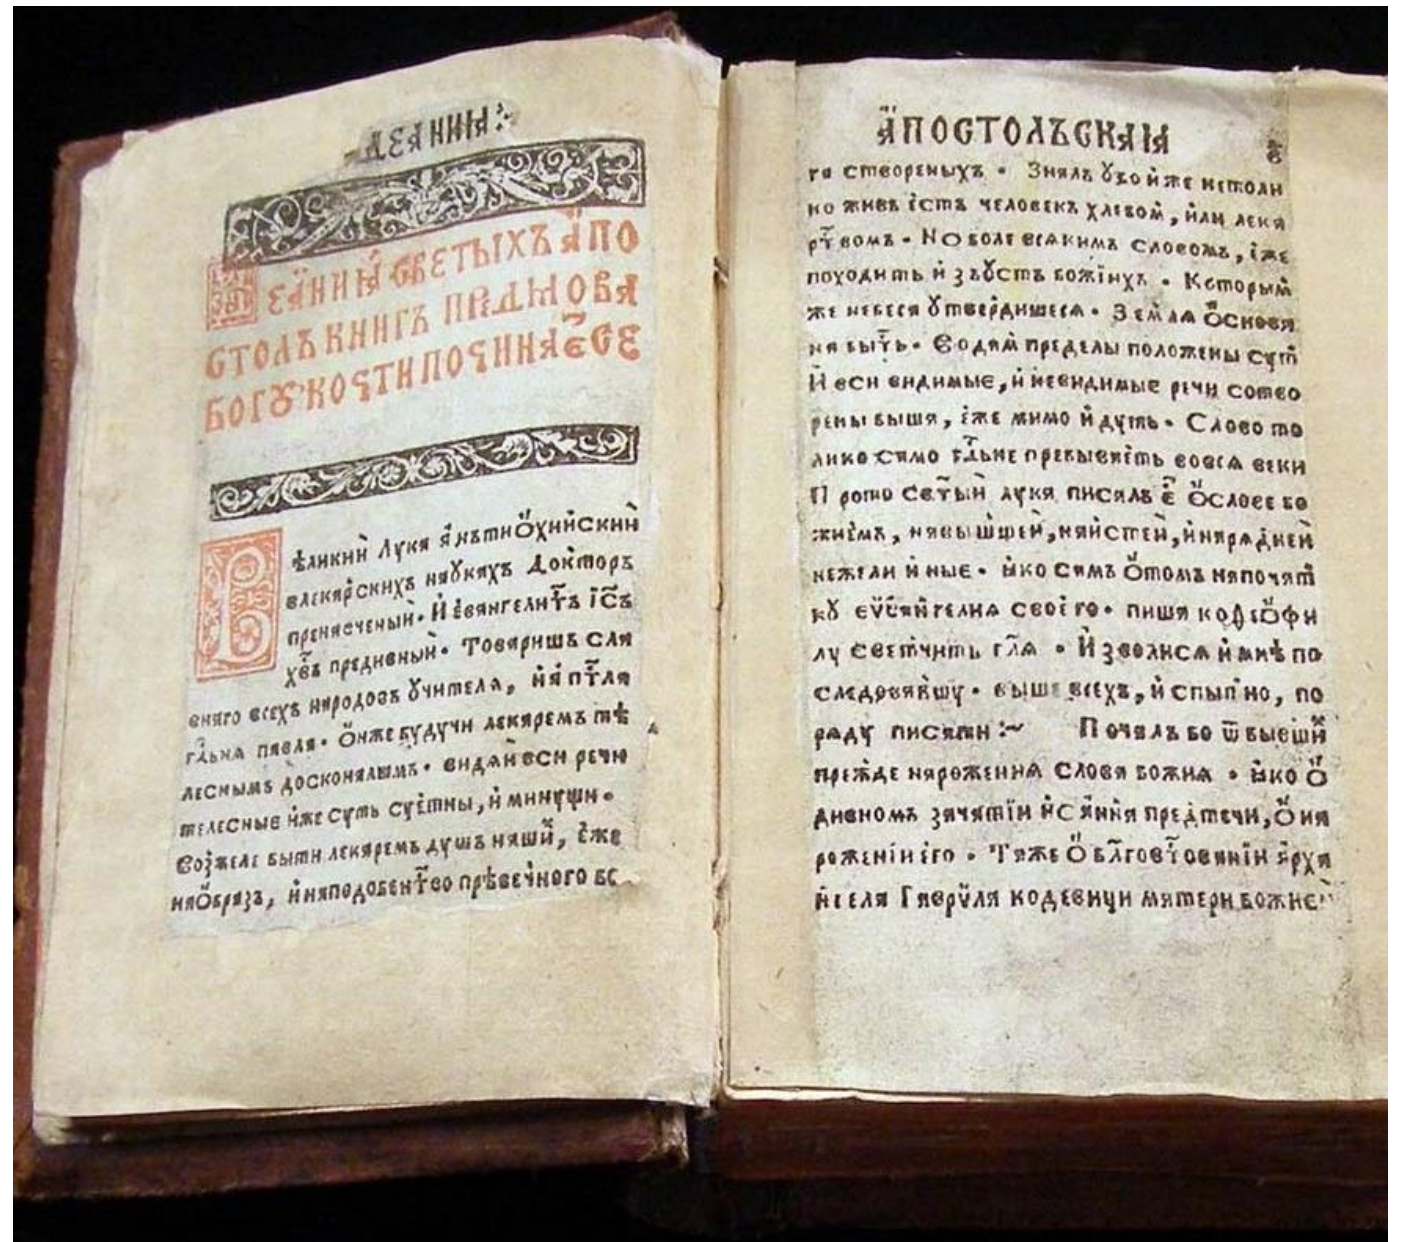 ДЕАНИꙖ:~
ДЕꙖ́НИꙖ СВЕТЫХЪ АПО
СТОЛЪ КНИГЪ ПРЕДЪМОВА
БОГꙊ КО ЧТИ ПОЧИНАЕТСЕ
Вѣликий Лука я҆нътиѻ҆хийский
влекярских наꙋках Докторъ
пренаученый. И҆ е҆вянгелистъ і҆съ
хв҃ъ предивный. Товаришъ сла
вняго всехъ народовъ ꙋчителя, и҆ апⷭ҇тла
гл҃ьна павла. Ѻ҆нже будучи лекяремъ тѣ
леснымъ досконялымъ. видяй вси речи
телесные и҆же суть суетны, и҆ минущи.
Возжеле быти лекяремъ душъ наший, е҆же
на ѻ҆бразъ, и҆ на подобенⷭ҇тво прѣвечного бо
АПОСТОЛЬСКАꙖ
га створеныхъ. Знялъ ꙋбо и҆же нетоли
ко живъ е҆стъ человекъ хлебоⷨ, и҆ли лека
рⷭ҇твомъ. Но боле всякимъ словомъ, е҆же
походить и҆зъ ꙋстъ божіихъ. Которыⷨ
же небеся ꙋтвердишеся. Земля ѻ҆снова
на бытъ. Водаⷨ пределы положены суⷮ
И҆ вси видимые, и҆ невидимые речи сотво
рены быша, е҆же мимо и҆дуть. Слово то
лико само гдⷭ҇ьне пребываеть вовся веки
Прото светый лука писалъ е҆ ѻ҆ слове бо
жиемъ, навышшей, найстей, и҆ нарядней
нежели и҆ные. ꙗко самъ ѻ҆ томъ на почаⷮ
кꙋ еѵангелия своего. пиша ко Ѳеѻ҆фи
лу светчить гл҃я. И҆зволися и҆ мнѣ по
следовавшу. выше всехъ, и҆спыⷮно, по
ряду писати:~ Почалъ бо ѿ вышшиⷯ
прежде нарожения слова божия. ꙗко ѻ҆
дивномъ зачатіи и҆сання предтечи, ѻ҆ на
роженіи его. Также ѻ҆ блⷢ҇овѣⷭ҇тованіи архя
нгела Гаврꙋла ко девици матери божие